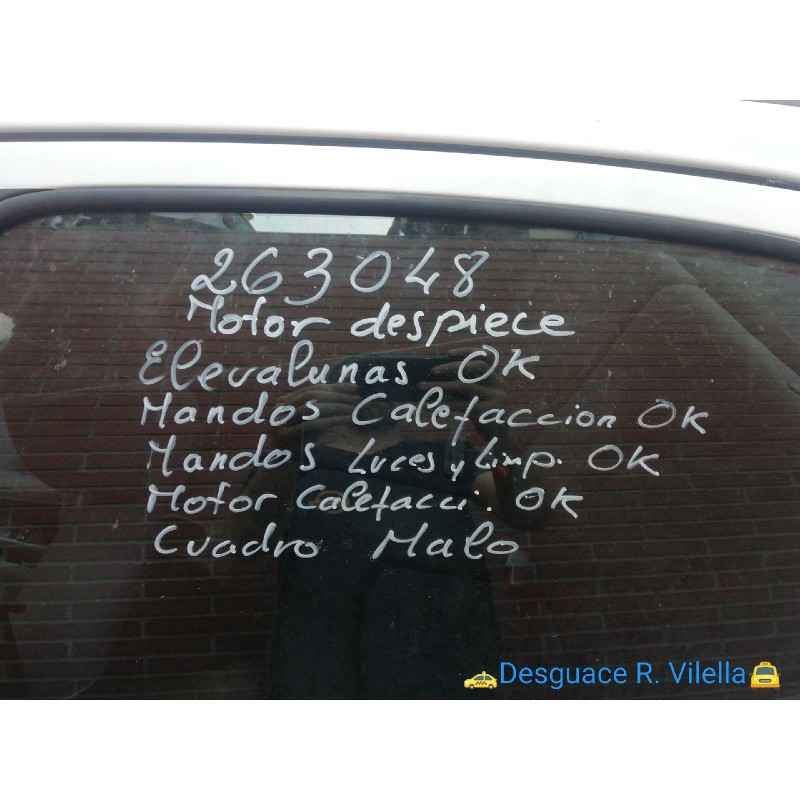 263048
Motor despiece
Elevalunas OK
Mandos Calefaccion OK
Mandos Luces y Limp. OK
Motor Calefacci. OK
Cuadro Malo
Desguace R. Vilella